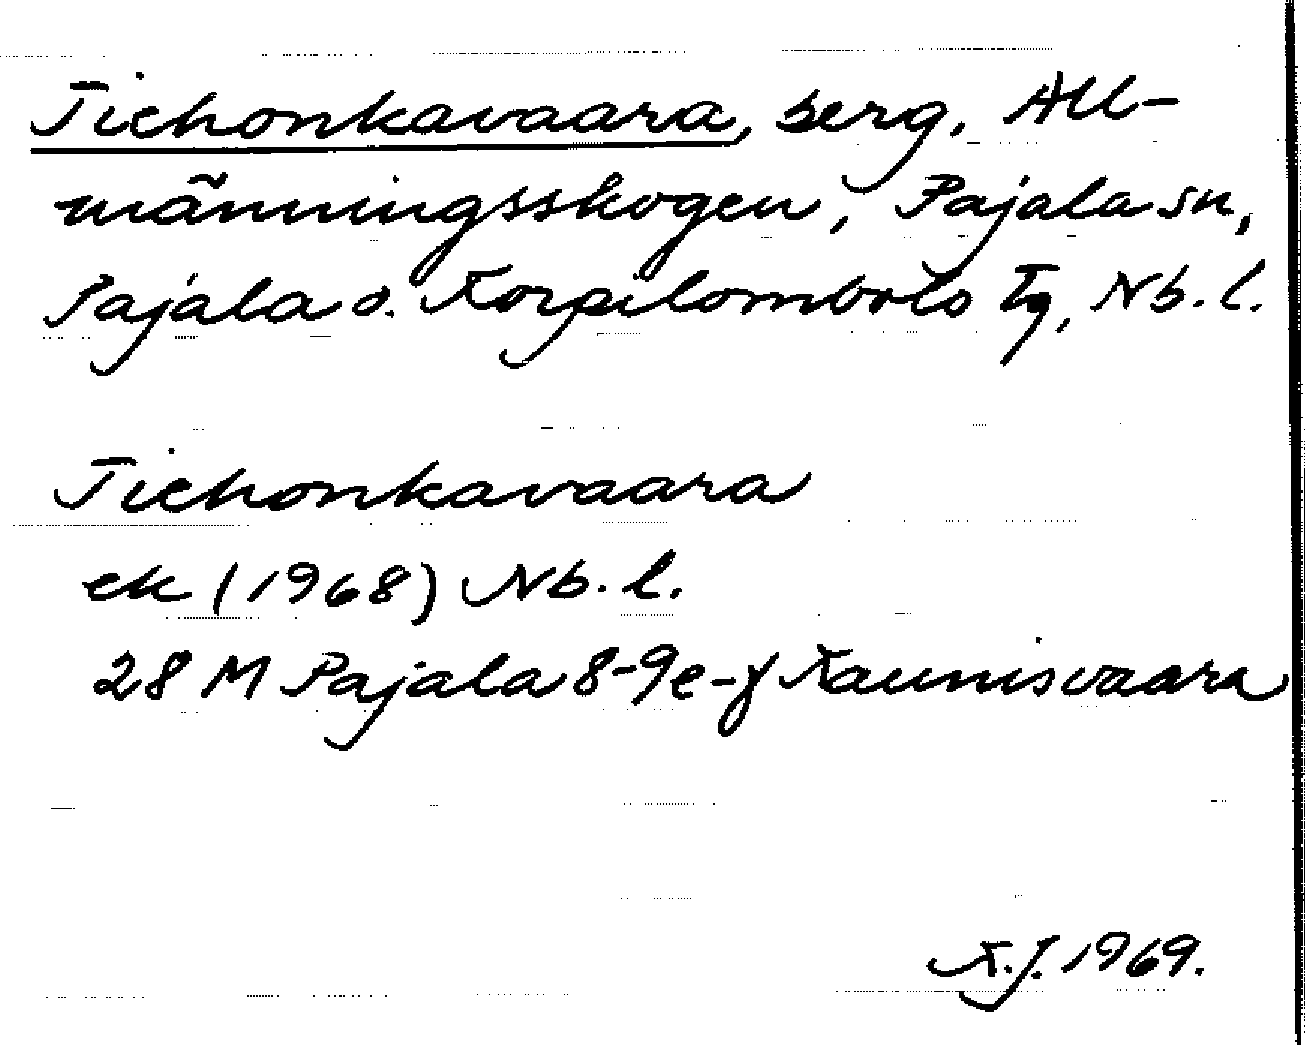 Tiehonkavaara, berg, All-
männingsskogen, Pajala sn,
Pajala o. Korpilombolo tg, Nb. l.
Tiehonkavaara
ek (1968) Nb. l.
28 M Pajala 8-9e-f Kaunisvaara
K.J. 1969.